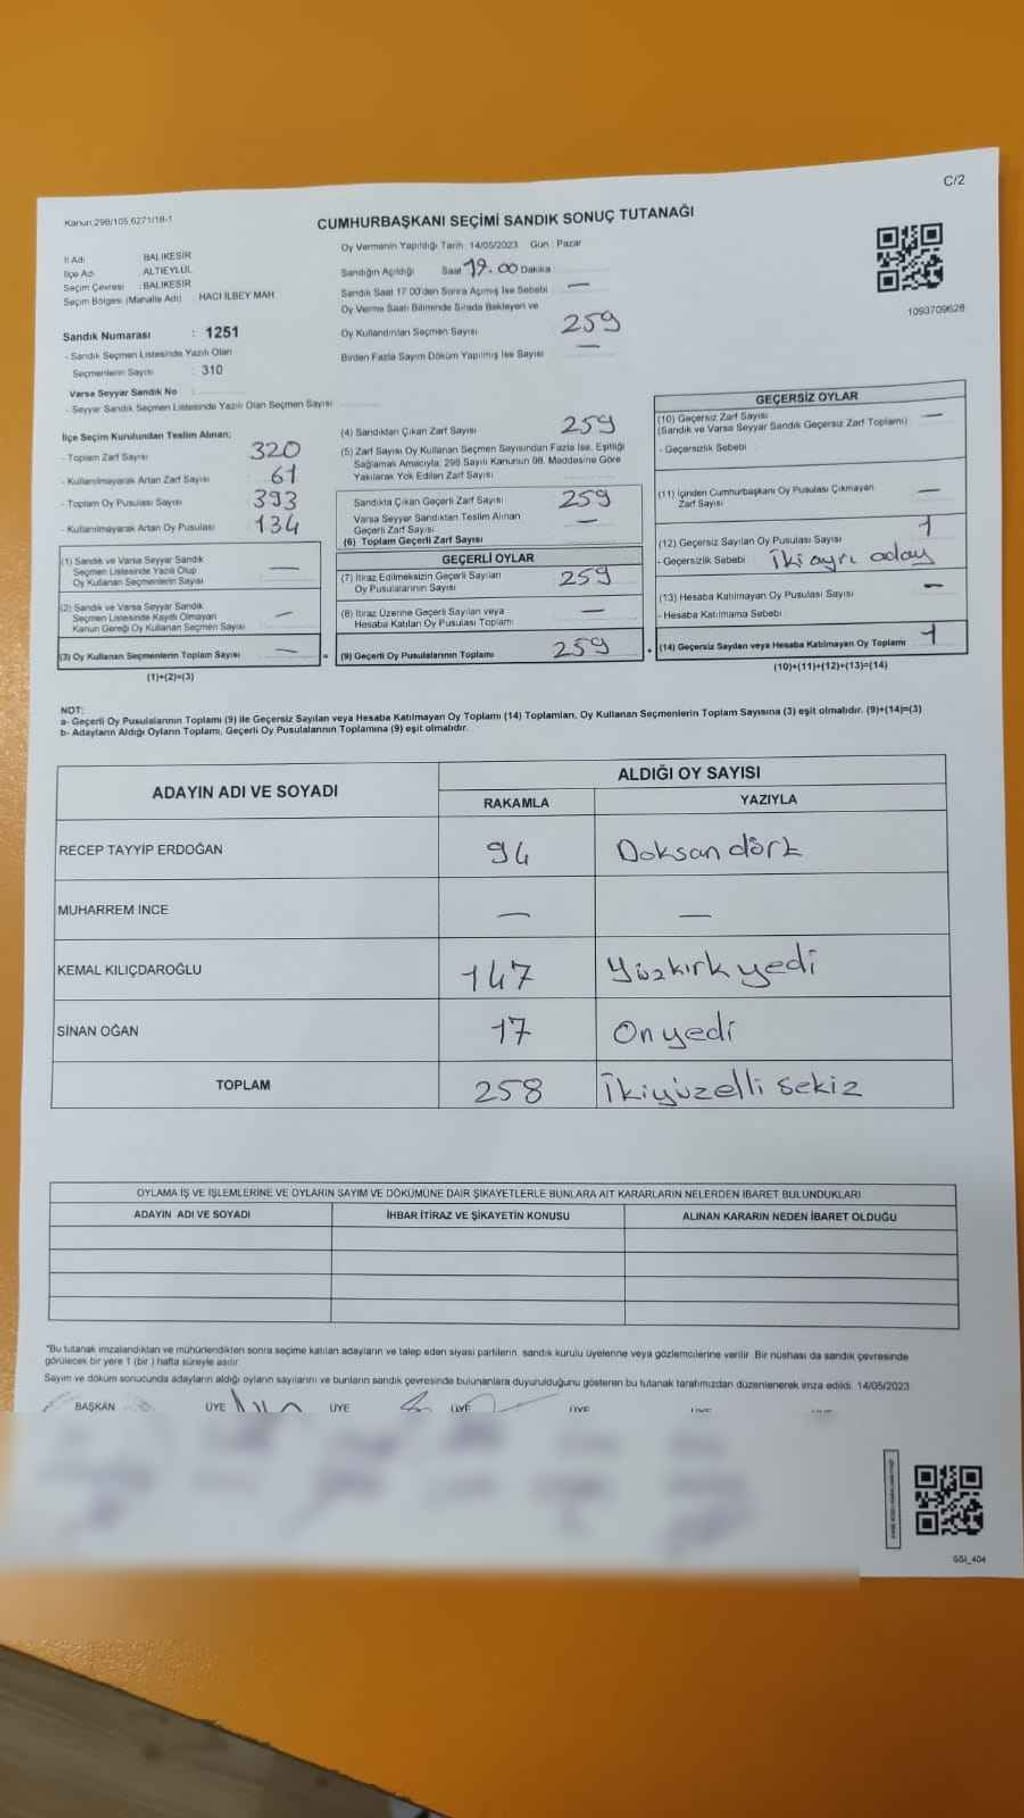 C/2
Kanun:298/105,6271/18-1
CUMHURBAŞKANI SEÇİMİ SANDIK SONUÇ TUTANAĞI
İl Adı BALIKESİR
İlçe Adı ALTIEYLÜL
Seçim Çevresi : BALIKESİR
Seçim Bölgesi (Mahalle Adı) HACI İLBEY MAH.
Sandık Numarası : 1251
- Sandık Seçmen Listesinde Yazılı Olan
Seçmenlerin Sayısı 310
Varsa Seyyar Sandık No
- Seyyar Sandık Seçmen Listesinde Yazılı Olan Seçmen Sayısı
Oy Vermenin Yapıldığı Tarih: 14/05/2023 Gün : Pazar
Sandığın Açıldığı Saat 19.00 Dakika
Sandık Saat 17.00'den Sonra Açılmış İse Sebebi —
Oy Verme Saati Bitiminde Sırada Bekleyen ve
Oy Kullandırılan Seçmen Sayısı 259
Birden Fazla Sayım Döküm Yapılmış İse Sayısı —
1093709628
İlçe Seçim Kurulundan Teslim Alınan;
- Toplam Zarf Sayısı 320
- Kullanılmayarak Artan Zarf Sayısı 61
- Toplam Oy Pusulası Sayısı 393
- Kullanılmayarak Artan Oy Pusulası 134
(1) Sandık ve Varsa Seyyar Sandık
Seçmen Listesinde Yazılı Olup
Oy Kullanan Seçmenlerin Sayısı —
(2) Sandık ve Varsa Seyyar Sandık
Seçmen Listesinde Kayıtlı Olmayan
Kanun Gereği Oy Kullanan Seçmen Sayısı —
(3) Oy Kullanan Seçmenlerin Toplam Sayısı —
(1)+(2)=(3)
(4) Sandıktan Çıkan Zarf Sayısı 259
(5) Zarf Sayısı Oy Kullanan Seçmen Sayısından Fazla İse, Eşitliği
Sağlamak Amacıyla, 298 Sayılı Kanunun 98. Maddesine Göre
Yakılarak Yok Edilen Zarf Sayısı
Sandıkta Çıkan Geçerli Zarf Sayısı 259
Varsa Seyyar Sandıktan Teslim Alınan
Geçerli Zarf Sayısı —
(6) Toplam Geçerli Zarf Sayısı
GEÇERLİ OYLAR
(7) İtiraz Edilmeksizin Geçerli Sayılan
Oy Pusulalarının Sayısı 259
(8) İtiraz Üzerine Geçerli Sayılan veya
Hesaba Katılan Oy Pusulası Toplamı —
= (9) Geçerli Oy Pusulalarının Toplamı 259
GEÇERSİZ OYLAR
(10) Geçersiz Zarf Sayısı —
(Sandık ve Varsa Seyyar Sandık Geçersiz Zarf Toplamı)
- Geçersizlik Sebebi
(11) İçinden Cumhurbaşkanı Oy Pusulası Çıkmayan
Zarf Sayısı —
(12) Geçersiz Sayılan Oy Pusulası Sayısı 1
- Geçersizlik Sebebi İki ayrı aday
(13) Hesaba Katılmayan Oy Pusulası Sayısı —
- Hesaba Katılmama Sebebi
+ (14) Geçersiz Sayılan veya Hesaba Katılmayan Oy Toplamı 1
(10)+(11)+(12)+(13)=(14)
NOT:
a- Geçerli Oy Pusulalarının Toplamı (9) ile Geçersiz Sayılan veya Hesaba Katılmayan Oy Toplamı (14) Toplamları, Oy Kullanan Seçmenlerin Toplam Sayısına (3) eşit olmalıdır. (9)+(14)=(3)
b- Adayların Aldığı Oyların Toplamı, Geçerli Oy Pusulalarının Toplamına (9) eşit olmalıdır.
ADAYIN ADI VE SOYADI
ALDIĞI OY SAYISI
RAKAMLA YAZIYLA
RECEP TAYYİP ERDOĞAN 94 Doksan dört
MUHARREM İNCE — —
KEMAL KILIÇDAROĞLU 147 Yüzkırk yedi
SİNAN OĞAN 17 On yedi
TOPLAM 258 İkiyüzelli sekiz
OYLAMA İŞ VE İŞLEMLERİNE VE OYLARIN SAYIM VE DÖKÜMÜNE DAİR ŞİKAYETLERLE BUNLARA AİT KARARLARIN NELERDEN İBARET BULUNDUKLARI
ADAYIN ADI VE SOYADI İHBAR İTİRAZ VE ŞİKAYETİN KONUSU ALINAN KARARIN NEDEN İBARET OLDUĞU
"Bu tutanak imzalandıktan ve mühürlendikten sonra seçime katılan adayların ve talep eden siyasi partilerin, sandık kurulu üyelerine veya gözlemcilerine verilir. Bir nüshası da sandık çevresinde
görülecek bir yere 1 (bir ) hafta süreyle asılır.
Sayım ve döküm sonucunda adayların aldığı oyların sayılarını ve bunların sandık çevresinde bulunanlara duyurulduğunu gösteren bu tutanak tarafımızdan düzenlenerek imza edildi. 14/05/2023
BAŞKAN ÜYE ÜYE ÜYE ÜYE
GSI_404